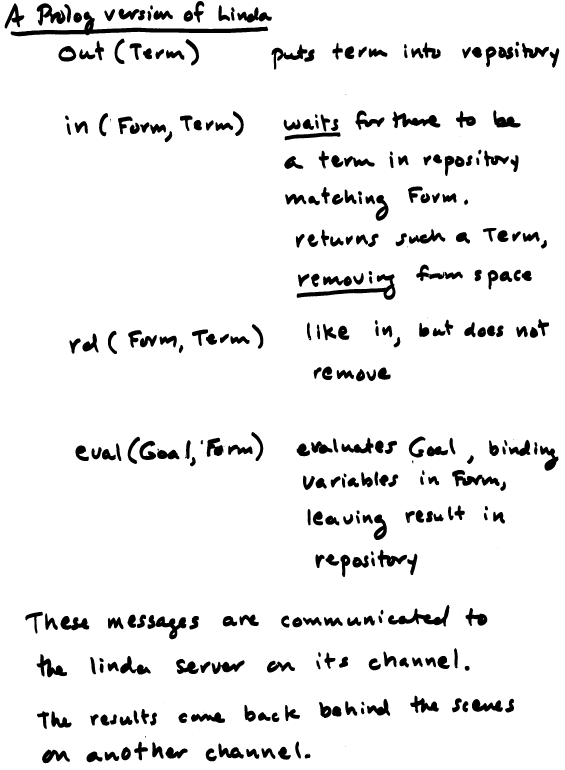 A Prolog version of Linda
out (Term) puts term into repository
in ( Form, Term) waits for there to be
a term in repository
matching Form.
returns such a Term,
removing from space
rd ( Form, Term) like in, but does not
remove
eval (Goal, Form) evaluates Goal, binding
variables in Form,
leaving result in
repository
These messages are communicated to
the linda server on its channel.
The results come back behind the scenes
on another channel.